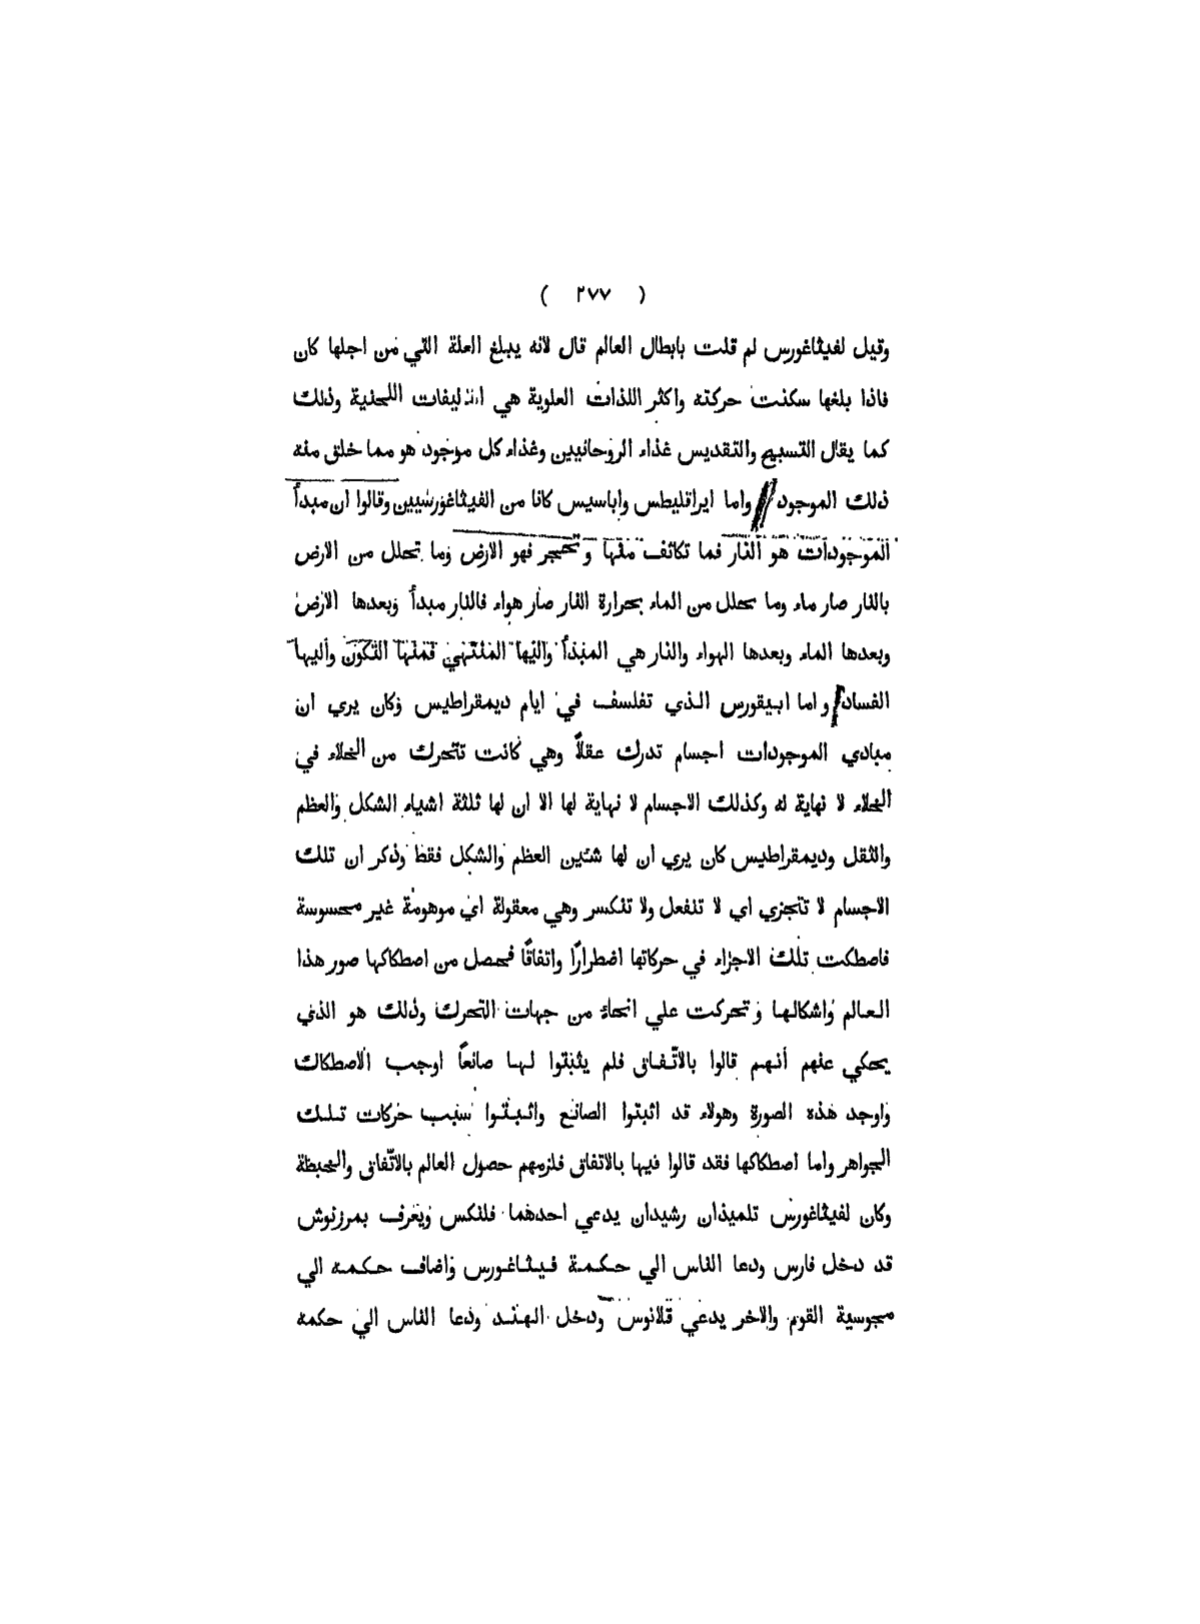 ( ٢٧٧ )
وقيل لفيثاغورس لم قلت بابطال العالم قال لانه يبلغ العلة التي من اجلها كان
فاذا بلغها سكنت حركته واكثر اللذات العلوية هي التاليفات اللحنية وذلك
كما يقال التسبيح والتقديس غذاء الروحانيين وغذاء كل موجود هو مما خلق منه
ذلك الموجود واما ايراقليطس واباسيس كانا من الفيثاغورسيين وقالوا ان مبدأ
الموجودات هو النار فما تكاثف منها وتحجر فهو الارض وما تحلل من الارض
بالنار صار ماء وما تحلل من الماء بحرارة النار صار هواء فالنار مبدأ وبعدها الارض
وبعدها الماء وبعدها الهواء والنار هي المبتدأ واليها المنتهي فمنها التكون واليها
الفساد واما ابيقورس الذي تفلسف في ايام ديمقراطيس وكان يري ان
مبادي الموجودات اجسام تدرك عقلاً وهي كانت تتحرك من الخلاء في
الخلاء لا نهاية له وكذلك الاجسام لا نهاية لها الا ان لها ثلثة اشياء الشكل والعظم
والثقل وديمقراطيس كان يري ان لها شئين العظم والشكل فقط وذكر ان تلك
الاجسام لا تتجزي اي لا تنفعل ولا تنكسر وهي معقولة اي موهومة غير محسوسة
فاصطكت تلك الاجزاء في حركاتها اضطرارًا واتفاقًا فحصل من اصطكاكها صور هذا
العالم واشكالها وتحركت علي انحاء من جهات التحرك وذلك هو الذي
يحكي عنهم أنهم قالوا بالاتّفاق فلم يثبتوا لها صانعًا اوجب الاصطكاك
واوجد هذه الصورة وهولاء قد اثبتوا الصانع واثبتوا سبب حركات تلك
الجواهر واما اصطكاكها فقد قالوا فيها بالاتفاق فلزمهم حصول العالم بالاتّفاق والخبطة
وكان لفيثاغورس تلميذان رشيدان يدعي احدهما فلنكس ويعرف بمرزنوش
قد دخل فارس ودعا الناس الي حكمة فيثاغورس واضاف حكمه الي
مجوسية القوم والاخر يدعي قلانوس ودخل الهند ودعا الناس الي حكمه